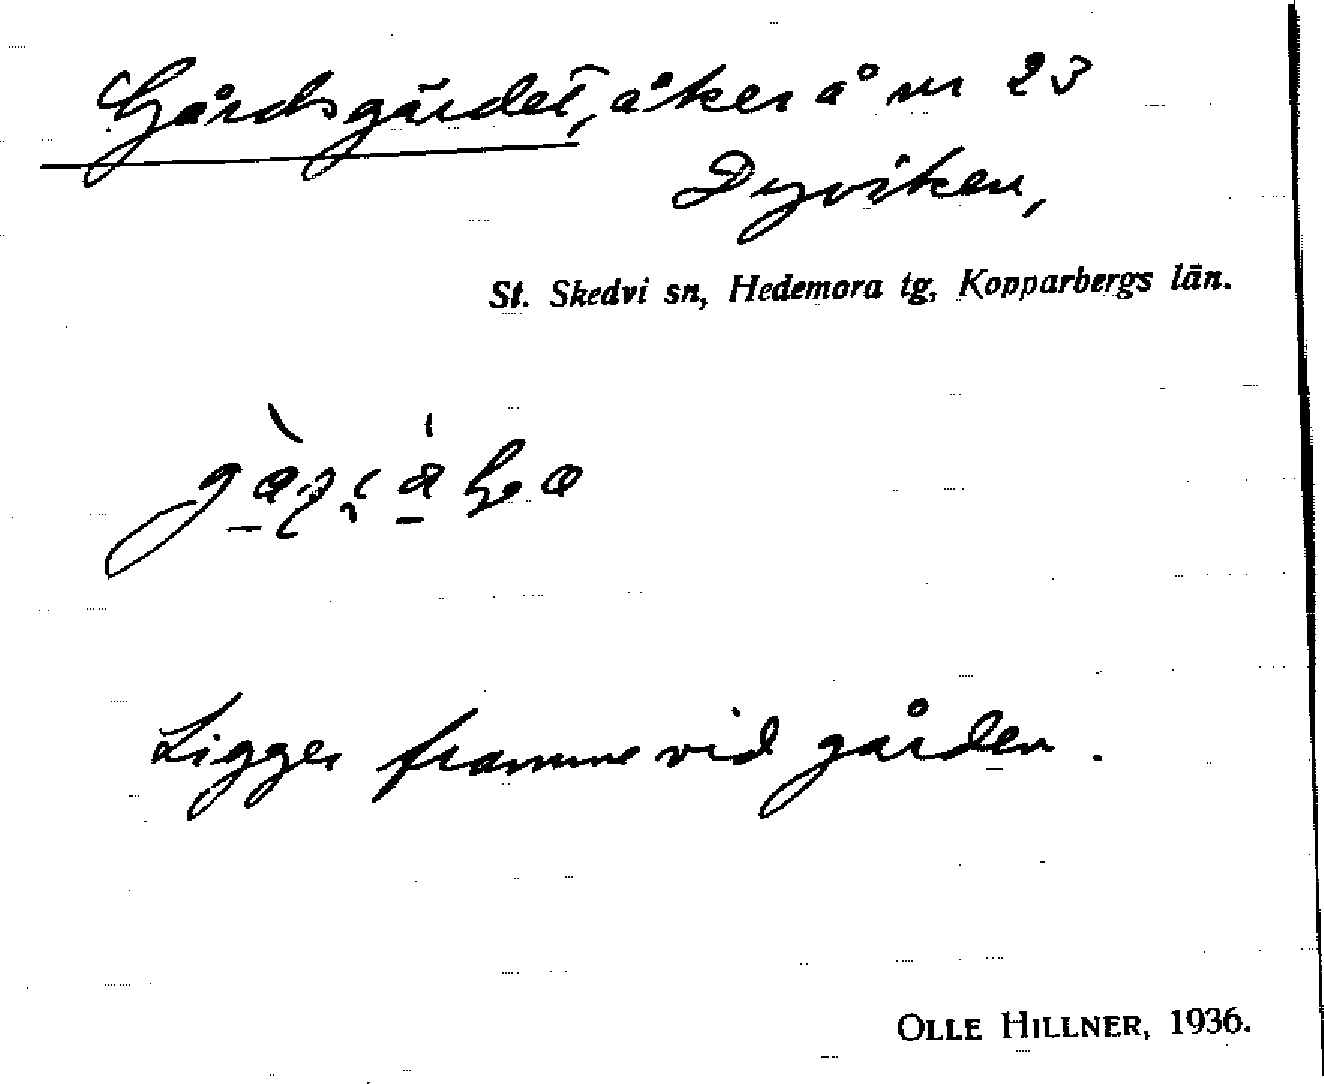 Gårdsgärdet, åker å nr 23
Dyviken,
St. Skedvi sn, Hedemora tg, Kopparbergs län.
Ligger framme vid gården.
OLLE HILLNER, 1936.